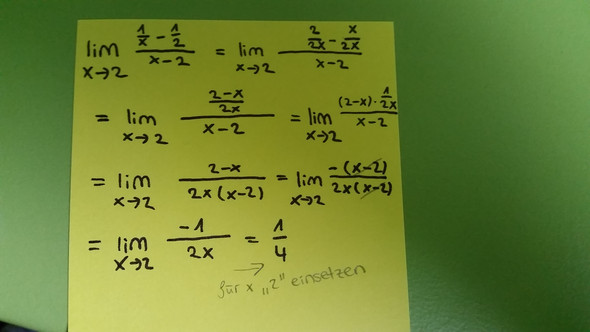 lim x→2 (1/x - 1/2)/(x-2) = lim x→2 (2/2x - x/2x)/(x-2)
= lim x→2 ((2-x)/2x)/(x-2) = lim x→2 ((2-x)·1/2x)/(x-2)
= lim x→2 (2-x)/(2x(x-2)) = lim x→2 (-(x-2))/(2x(x-2))
= lim x→2 -1/2x = 1/4
für x „2" einsetzen